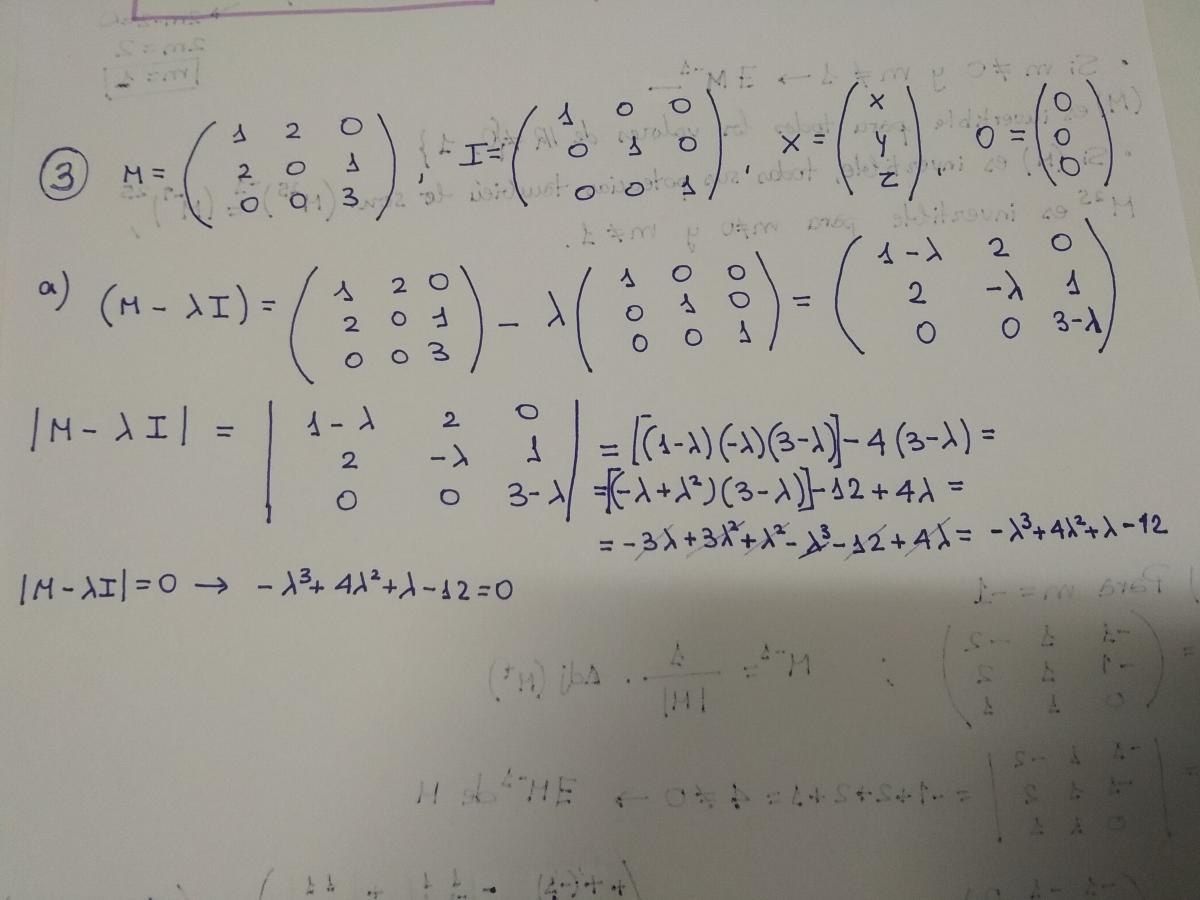 ③ M = ( 1 2 0 / 2 0 1 / 0 0 3 ), I = ( 1 0 0 / 0 1 0 / 0 0 1 ), X = ( x / y / z ), 0 = ( 0 / 0 / 0 )
a) (M - λI) = ( 1 2 0 / 2 0 1 / 0 0 3 ) - λ ( 1 0 0 / 0 1 0 / 0 0 1 ) = ( 1-λ 2 0 / 2 -λ 1 / 0 0 3-λ )
|M - λI| = | 1-λ 2 0 / 2 -λ 1 / 0 0 3-λ | = [(1-λ)(-λ)(3-λ)] - 4(3-λ) =
= [(-λ+λ²)(3-λ)] - 12 + 4λ =
= -3λ + 3λ² + λ² - λ³ - 12 + 4λ = -λ³ + 4λ² + λ - 12
|M - λI| = 0 → -λ³ + 4λ² + λ - 12 = 0